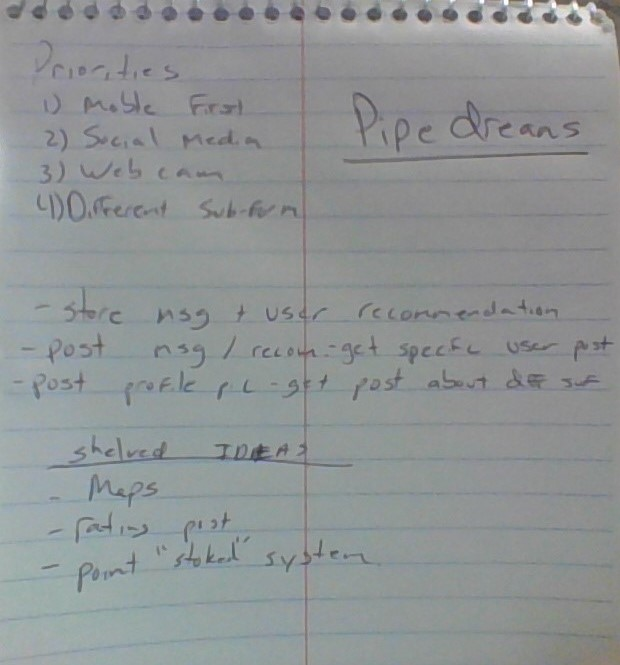 Priorities
1) Moble First
2) Social Media
3) Web cam
4) Different Sub-form
Pipe dreams
- store msg + user recommendation
- post msg / recom - get specific user post
- post profile pic - get post about
shelved IDEAS
- Maps
- rating post
- point "stoked" system